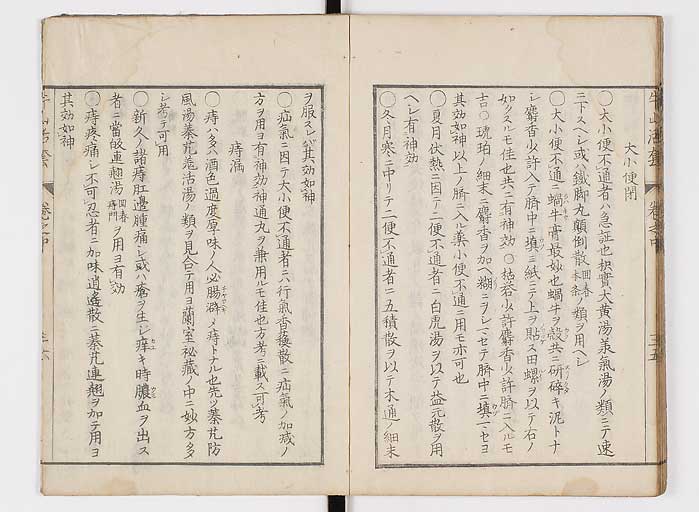 大小便閉
〇大小便不通者ハ急証也枳實大黄湯承氣湯ノ類ニテ速
ニ下スヘシ或ハ鐵脚丸顛倒散回春本条ノ類ヲ用ヘシ
〇大小便不通ニ蝸牛膏最妙也蝸牛ヲ殻共ニ研碎キ泥トナ
シ麝香少許入テ臍中ニ填ニ紙ニテ上ヲ貼ヘ田螺ヲ以テ右ノ
如クスルモ佳也共ニ有神効〇枯礬少許麝香少許臍ニ入ルモ
吉〇琥珀ノ細末ニ麝香ヲ加ヘ糊ニシテ臍中ニ填ニセヨ
其効如神以上ノ臍ニ入ル薬小便不通ニ用モ亦可也
〇夏月伏熱ニ因テ二便不通者ニ白虎湯ヲ以テ益元散ヲ用
ヘシ有神効
〇冬月寒ニ中リテ二便不通者ニ五積散ヲ以テ木通ノ細末
ヲ服スレハ其効如神
〇疝氣ニ因テ大小便不通者ニハ行氣香蘓散ニ疝氣ノ加减ノ
方ヲ用ヨ有神効神通丸ヲ兼用ルモ佳也方考ニ載ス可考
痔漏
〇痔ハ多ハ酒色過度厚味ノ人必腸澼メ痔トナル也先ツ蓁艽防
風湯蓁艽羗活湯ノ類ヲ見合テ用ヨ蘭室祕藏ノ中ニ妙方多
シ考テ可用
〇新久ノ諸痔肛邊腫痛シ或ハ瘡ヲ生シ痒キ時膿血ヲ出ス
者ニ當皈連翹湯回春痔門ヲ用ヨ有効
〇痔疼痛シ不可忍者ニ加味逍遙散ニ蓁艽連翹ヲ加テ用ヨ
其効如神